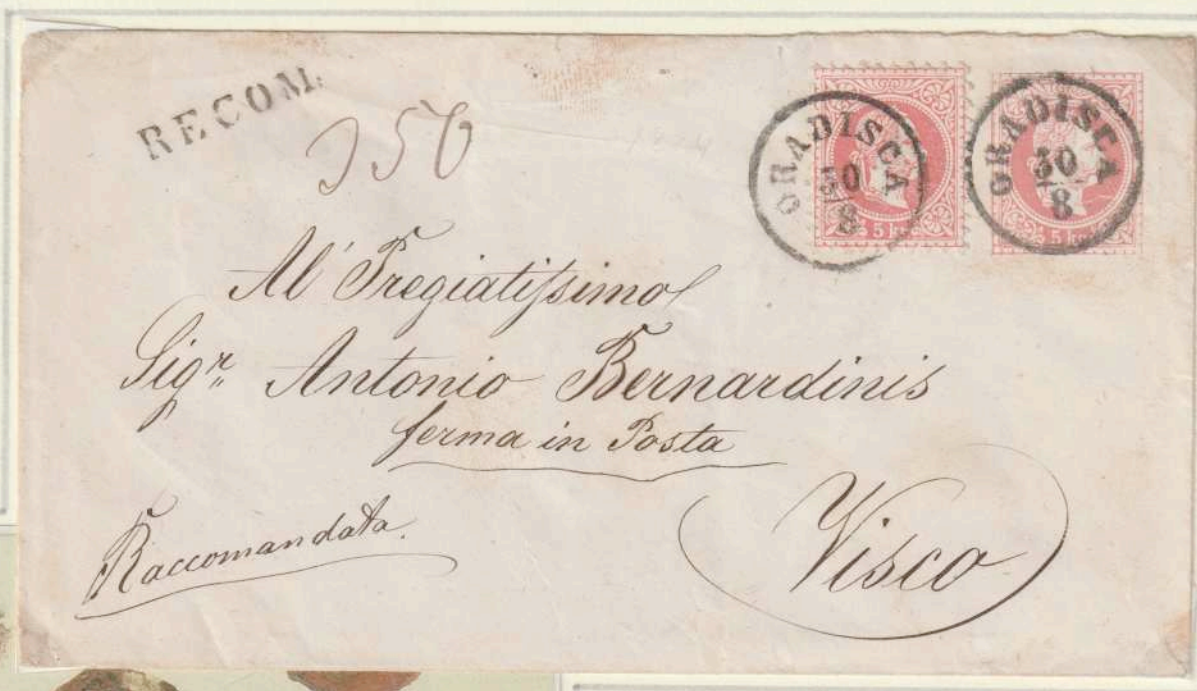 RECOM.
350
GRADISCA
30
8
5 kr
GRADISCA
30
8
5 kr
Al Pregiatissimo
Sigr. Antonio Bernardinis
ferma in Posta
Visco
Raccomandata.